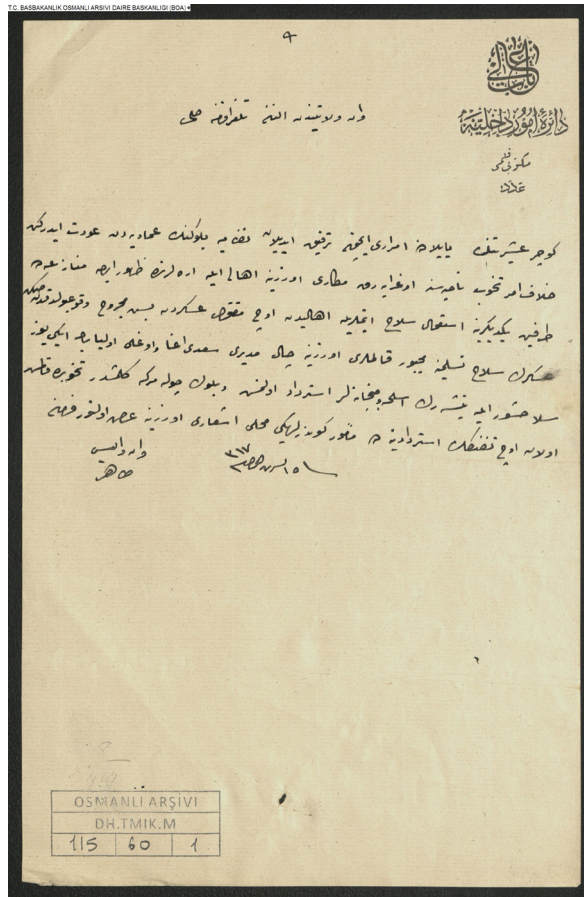 T.C. BASBAKANLIK OSMANLI ARSIVI DAIRE BASKANLIGI (BOA)
باب عالی
دائرۀ امور داخلیه
مکتوبی قلمی
عدد
وان ولایتندن النان تلغرافنامه حلی
کوچر عشیرتنك یایلادن امراری ایچون ترفیق ایدیلان نظامیه بلوکنك عمادیه دن عودت ایدرکن
خلاف امر تخوب ناحیه سنه اوغرایه رق اورزینه اهالی ایله اره لرنده ظهور ایدن منازعه ده
طرفین یکدیکرینه استعمال سلاح ایتملریله اهالیدن اوچ عسکردن بش مجروح وقوعبولدقدنصکره
عسکرك سلاح تسلیمنه مجبور قالملری اوزرینه چال مدیری سعدی اغا واوغلی اولیا بك ایکی یوز
سلاحشور ایله یتیشه رك اسلحه وجبخانه لر استرداد اولنمش وبلوك چوله مرکه کلمشدر تخوبده قالمش
اولان اوچ تفنکك استردادینه مأمور کوندرلدیکی محلی اشعاری اوزرینه عرض اولنور فرمان
١٥ ٣١٧
وان والیسی
طاهر
OSMANLI ARŞİVİ
DH.TMIK.M
115 60 1